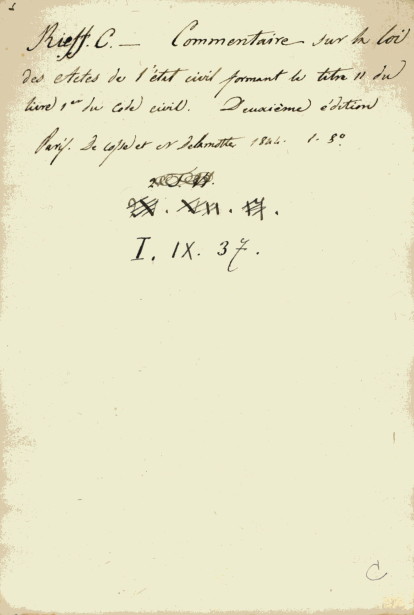 Rieff. C. — Commentaire sur la loi
des Actes de l'état civil formant le titre II du
livre 1er du code civil. Deuxième édition
Paris. De cosse et N Delamotte 1844. 1. 8°
I. IX. 37.
C